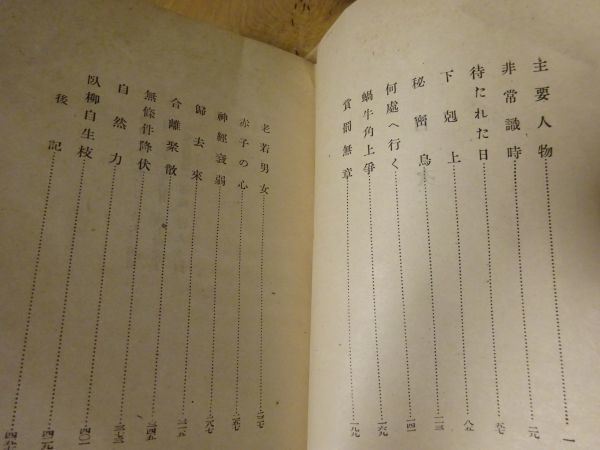 主要人物……一
非常識時……二元
待たれた日……五七
下剋上……八五
秘密鳥……一一三
何處へ行く……一四一
蝸牛角上爭……一六九
賞罰無章……一九
老若男女
赤子の心
神經衰弱
歸去來
合離聚散……三一五
無條件降伏……三四五
自然力……三七三
臥柳自生枝……四〇一
後記